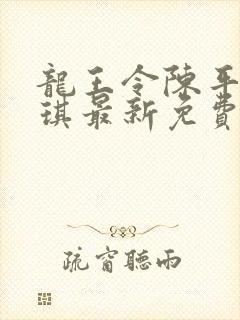 龍王令陳平
琪最新免費
疏窗聽雨